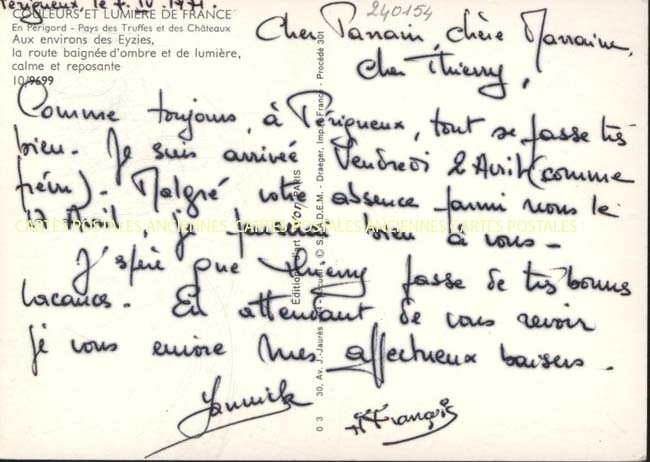 Périgueux, le 7. IV. 1971.
COULEURS ET LUMIÈRE DE FRANCE
En Périgord - Pays des Truffes et des Châteaux
Aux environs des Eyzies,
la route baignée d'ombre et de lumière,
calme et reposante
10/9699
240154
Cher Parrain, chère Marraine,
cher Thierry,
Comme toujours, à Périgueux, tout se passe très
bien. Je suis arrivée Vendredi 2 Avril (comme
prévu). Malgré votre absence parmi nous le
Avril je pensais bien à vous -
J'spère que Thierry passe de très bonnes
vacances. En attendant de vous revoir
je vous envoie mes affectueux baisers.
Yannick
François
CARTES POSTALES ANCIENNES CARTES POSTALES ANCIENNES CARTES POSTALES
Editions d'art Yvon PARIS
03 30, Av. J.-Jaurès - Arcueil © S.P.A.D.E.M. - Draeger, Imp. - France - Procédé 301